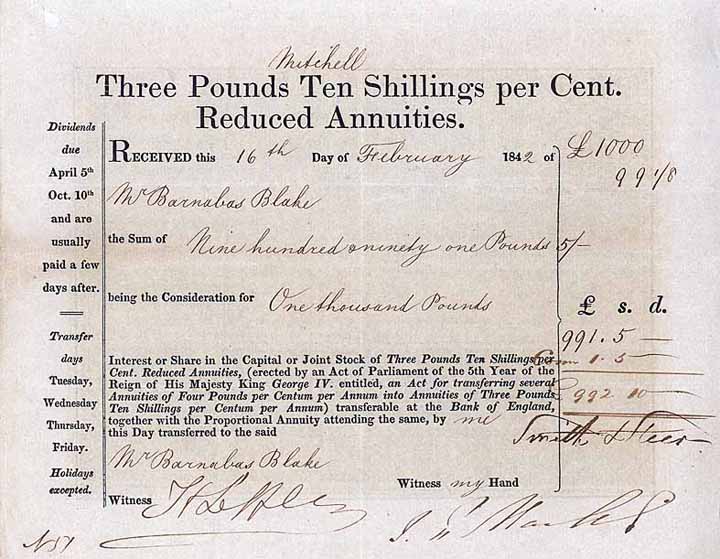 Mitchell
Three Pounds Ten Shillings per Cent.
Reduced Annuities.
Dividends
due
April 5th
Oct. 10th
and are
usually
paid a few
days after.
Transfer
days
Tuesday,
Wednesday
Thursday,
Friday.
Holidays
excepted.
RECEIVED this 16th Day of February 1842 of
Mr Barnabas Blake
the Sum of Nine hundred & ninety one Pounds 5/-
being the Consideration for One thousand Pounds
Interest or Share in the Capital or Joint Stock of Three Pounds Ten Shillings per
Cent. Reduced Annuities, (erected by an Act of Parliament of the 5th Year of the
Reign of His Majesty King George IV. entitled, an Act for transferring several
Annuities of Four Pounds per Centum per Annum into Annuities of Three Pounds
Ten Shillings per Centum per Annum) transferable at the Bank of England,
together with the Proportional Annuity attending the same, by me
this Day transferred to the said
Mr Barnabas Blake
Witness my Hand
Witness
£1000
99 1/8
£ s. d.
991.5 —
1.5 —
992 10 —
Smith &